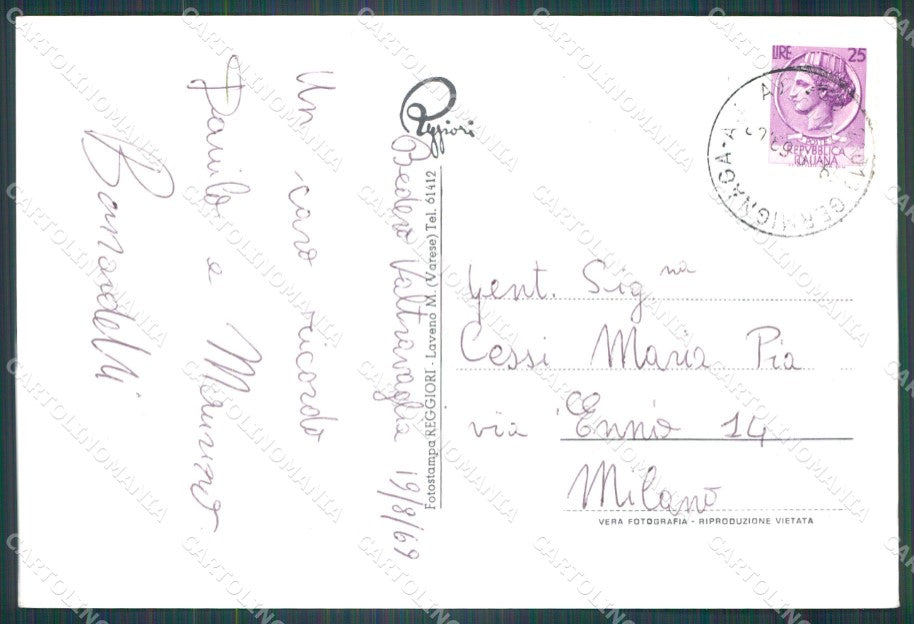 Bedero Valtravaglia 19/8/69
Un caro ricordo
Danilo e
Reggiori
Fotostampa REGGIORI - Laveno M. (Varese) Tel. 61412
LIRE 25
REPVBBLICA
ITALIANA
GERMIGNAGA
Gent. Sig na
Cessi Maria Pia
via Ennio 14
Milano
VERA FOTOGRAFIA - RIPRODUZIONE VIETATA
CARTOLINOMANIA